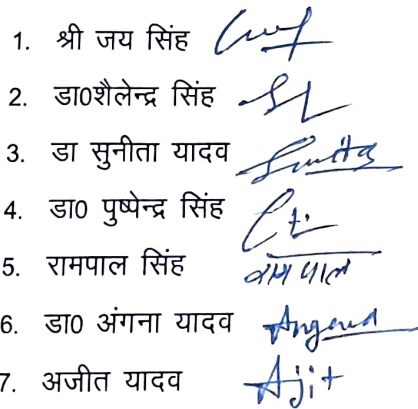 1. श्री जय सिंह
2. डा0शैलेन्द्र सिंह
3. डा सुनीता यादव Sunita
4. डा0 पुष्पेन्द्र सिंह
5. रामपाल सिंह रामपाल
6. डा0 अंगना यादव Angana
7. अजीत यादव Ajit